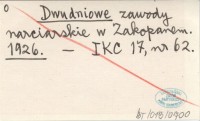 0
Dwudniowe zawody
narciarskie w Zakopanem.
1926. — IKC 17, nr 62.